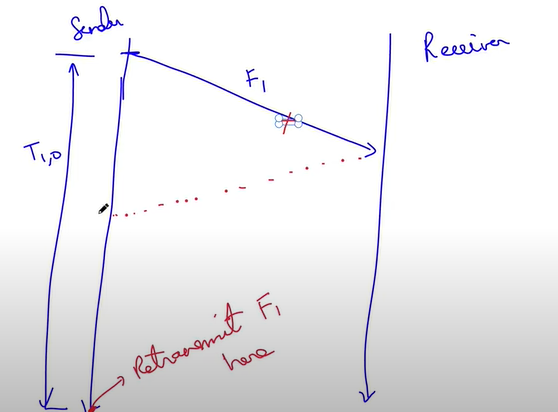 Sender
Receiver
F1
T1,0
Retransmit F1
here